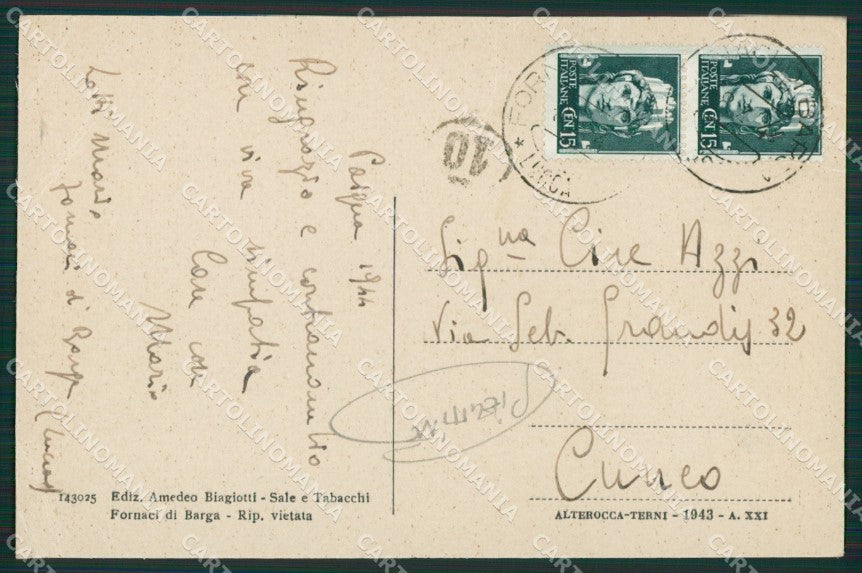 Pasqua 1944
Ringrazio e contraccambio
con viva simpatia
Mario
Mario
Fornaci di Barga
(Lucca)
10
FORNACI
BARGA
* LUCCA
POSTE ITALIANE
CEN 15
POSTE ITALIANE
CEN 15
Sig.na Cire Azzi
Via Seb. Grandis 32
Cuneo
143025 Ediz. Amedeo Biagiotti - Sale e Tabacchi
Fornaci di Barga - Rip. vietata
ALTEROCCA-TERNI - 1943 - A. XXI
CARTOLINOMANIA